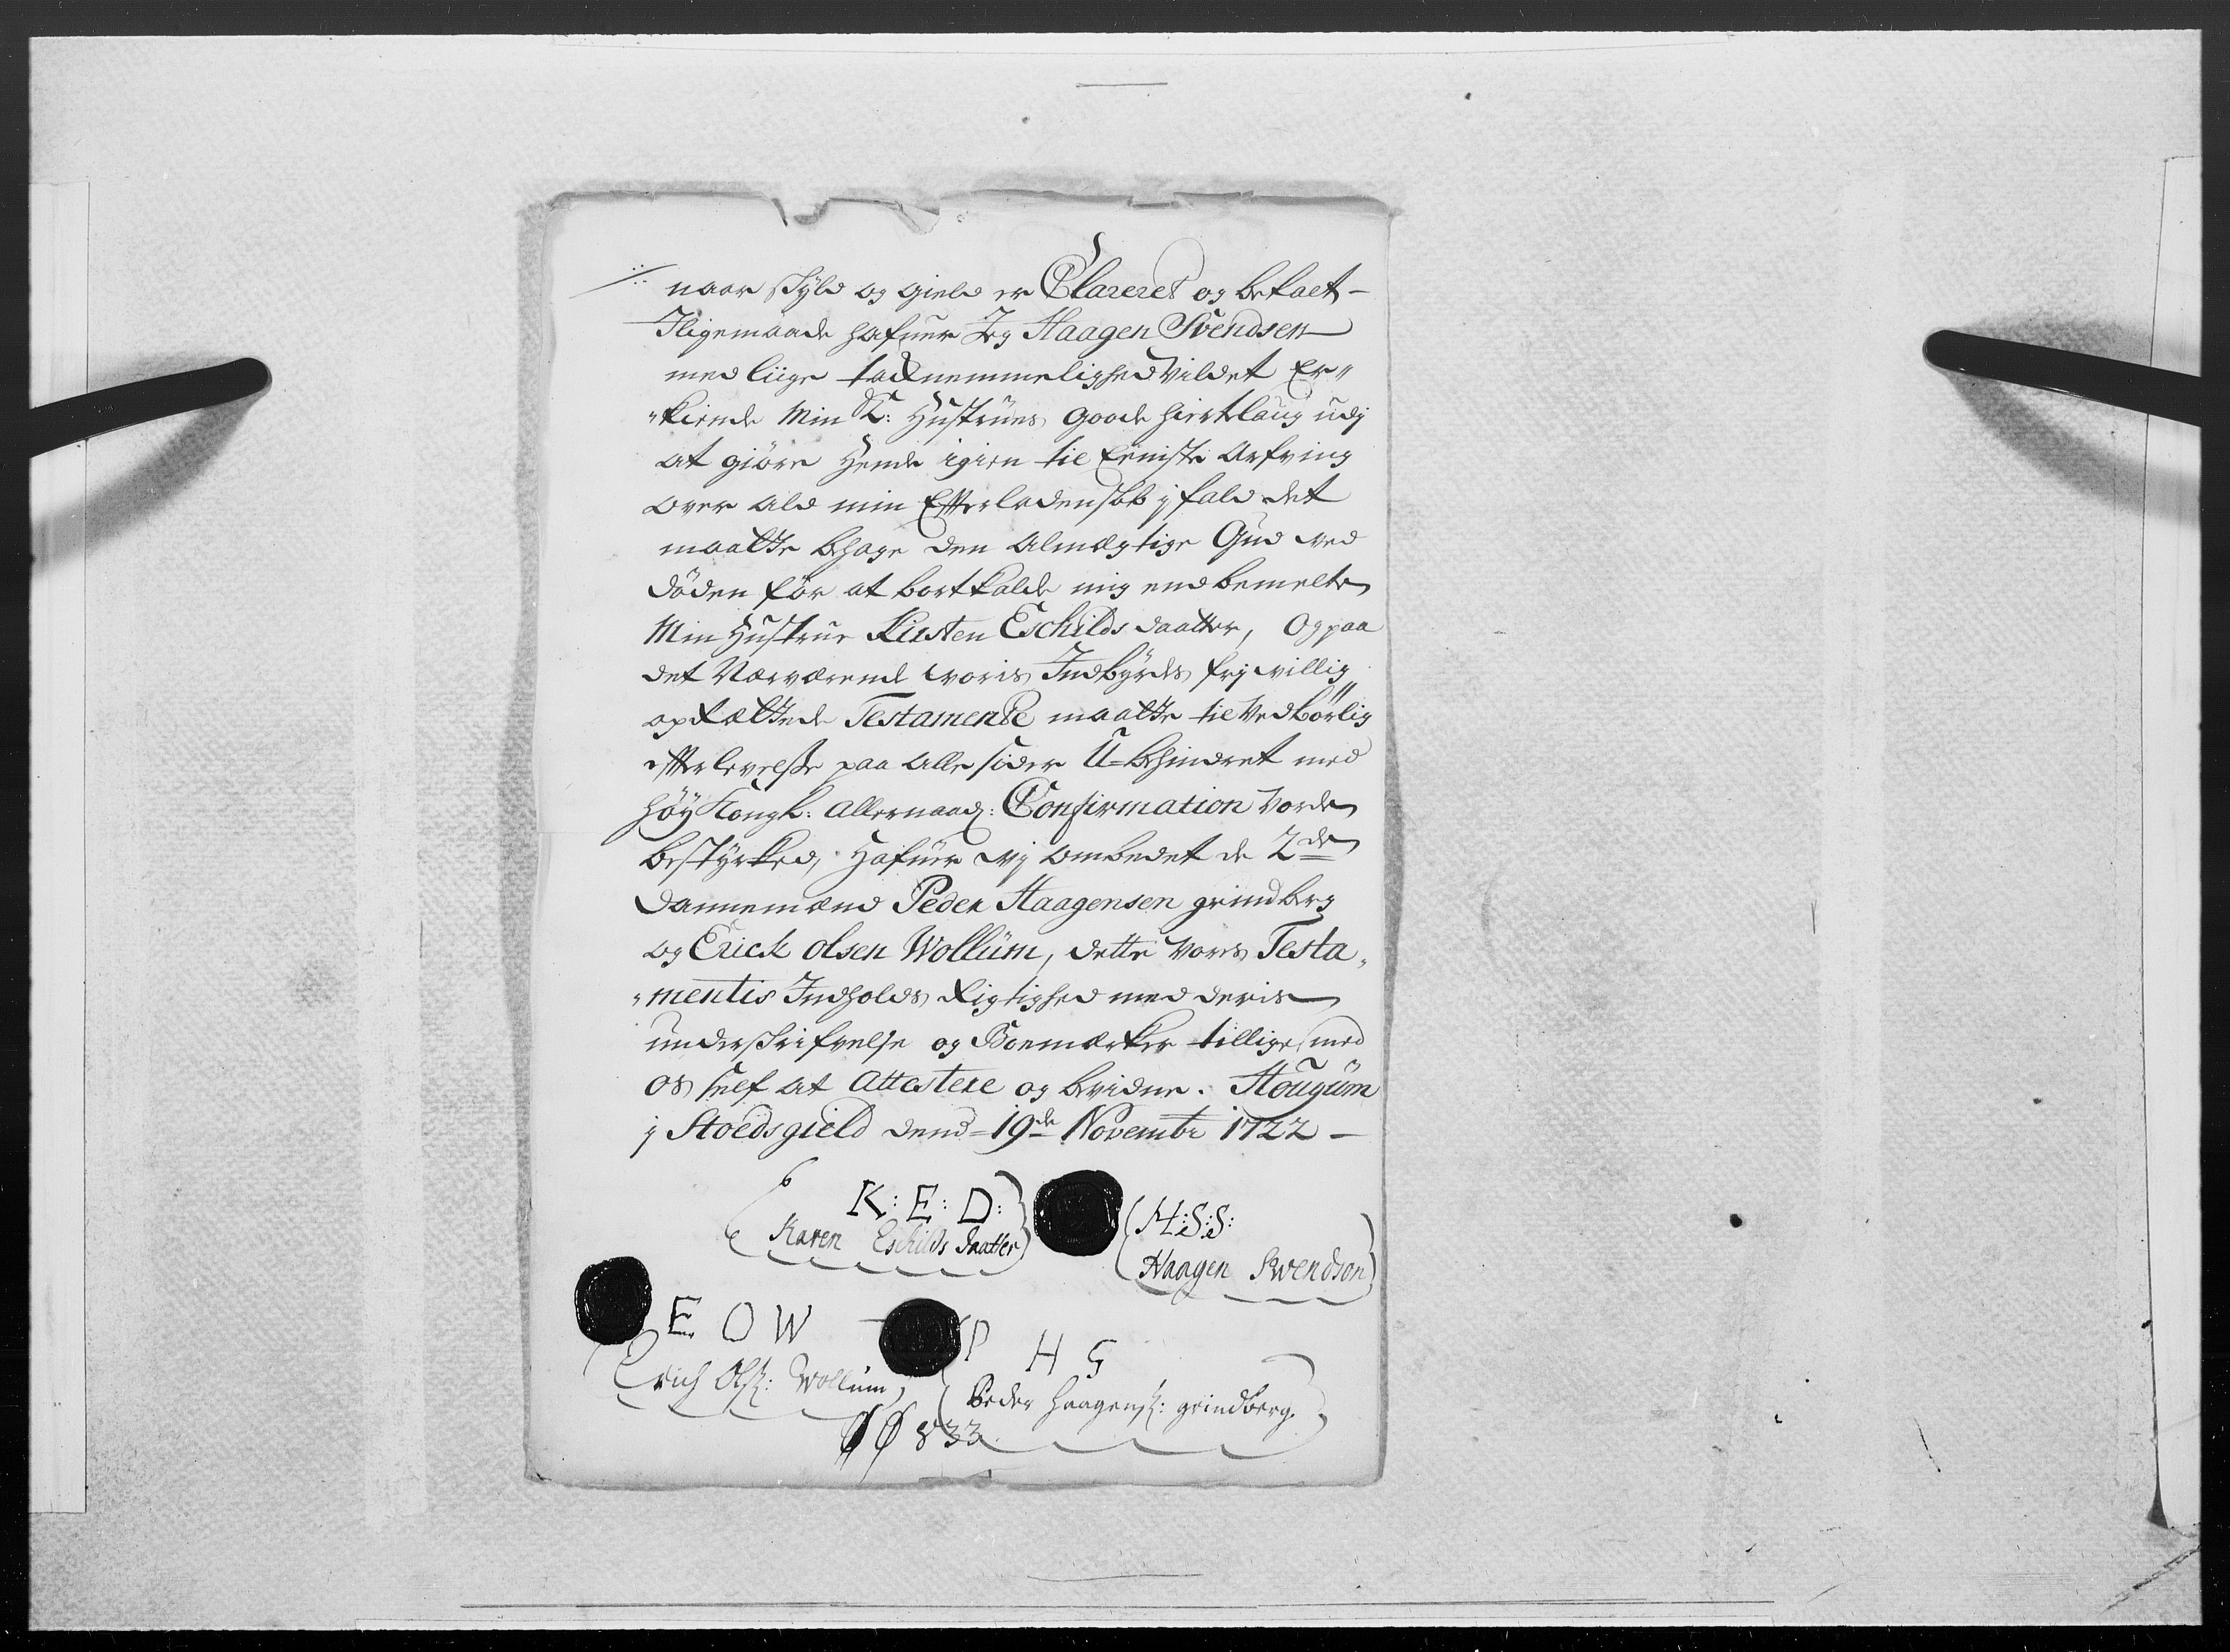 naar skyld og gield er Clareret og betalt -
Iligemaade hafuer Jeg Haagen Svendsen
med liige tacknemmelighed Vildet Er„
„kiende Min K: Hustrues goode hiertelaug udj
at giöre Hende igien til Eeniste Arfving
over ald min Efterladenskb j fald det
maatte behage den Almægtige Gud ved
Döden för at bortkalde mig end bemelte
Min Hustrue Kirsten Eschilds daatter, Og paa
det Nærværende woris Indbyrdes frj willig
oprættede Testamente maatte til Vedbörlig
efterlevelse paa alle sider U-behindret med
höy Kongl: allernaad: Confirmation Vorde
bestyrked, Hafuer vj ombedet de 2de
Dannemænd Peder Haagensen grindberg
og Erick olsen Wollüm, dette voris Testa„
„mentis Indholds Rigtighed med deris
underskrifvelse og Boemærker tillige med
os self at Attestere og bevidne. Hougüm
j Stoedsgield dend 19de Novembr 1722 -
K: E: D:
H:S:S:
Karen Eschilds daatter
Haagen Swendson
E O W
P H G
Erich Olss: Wollum
Peder Haagenss: grindberg.
833